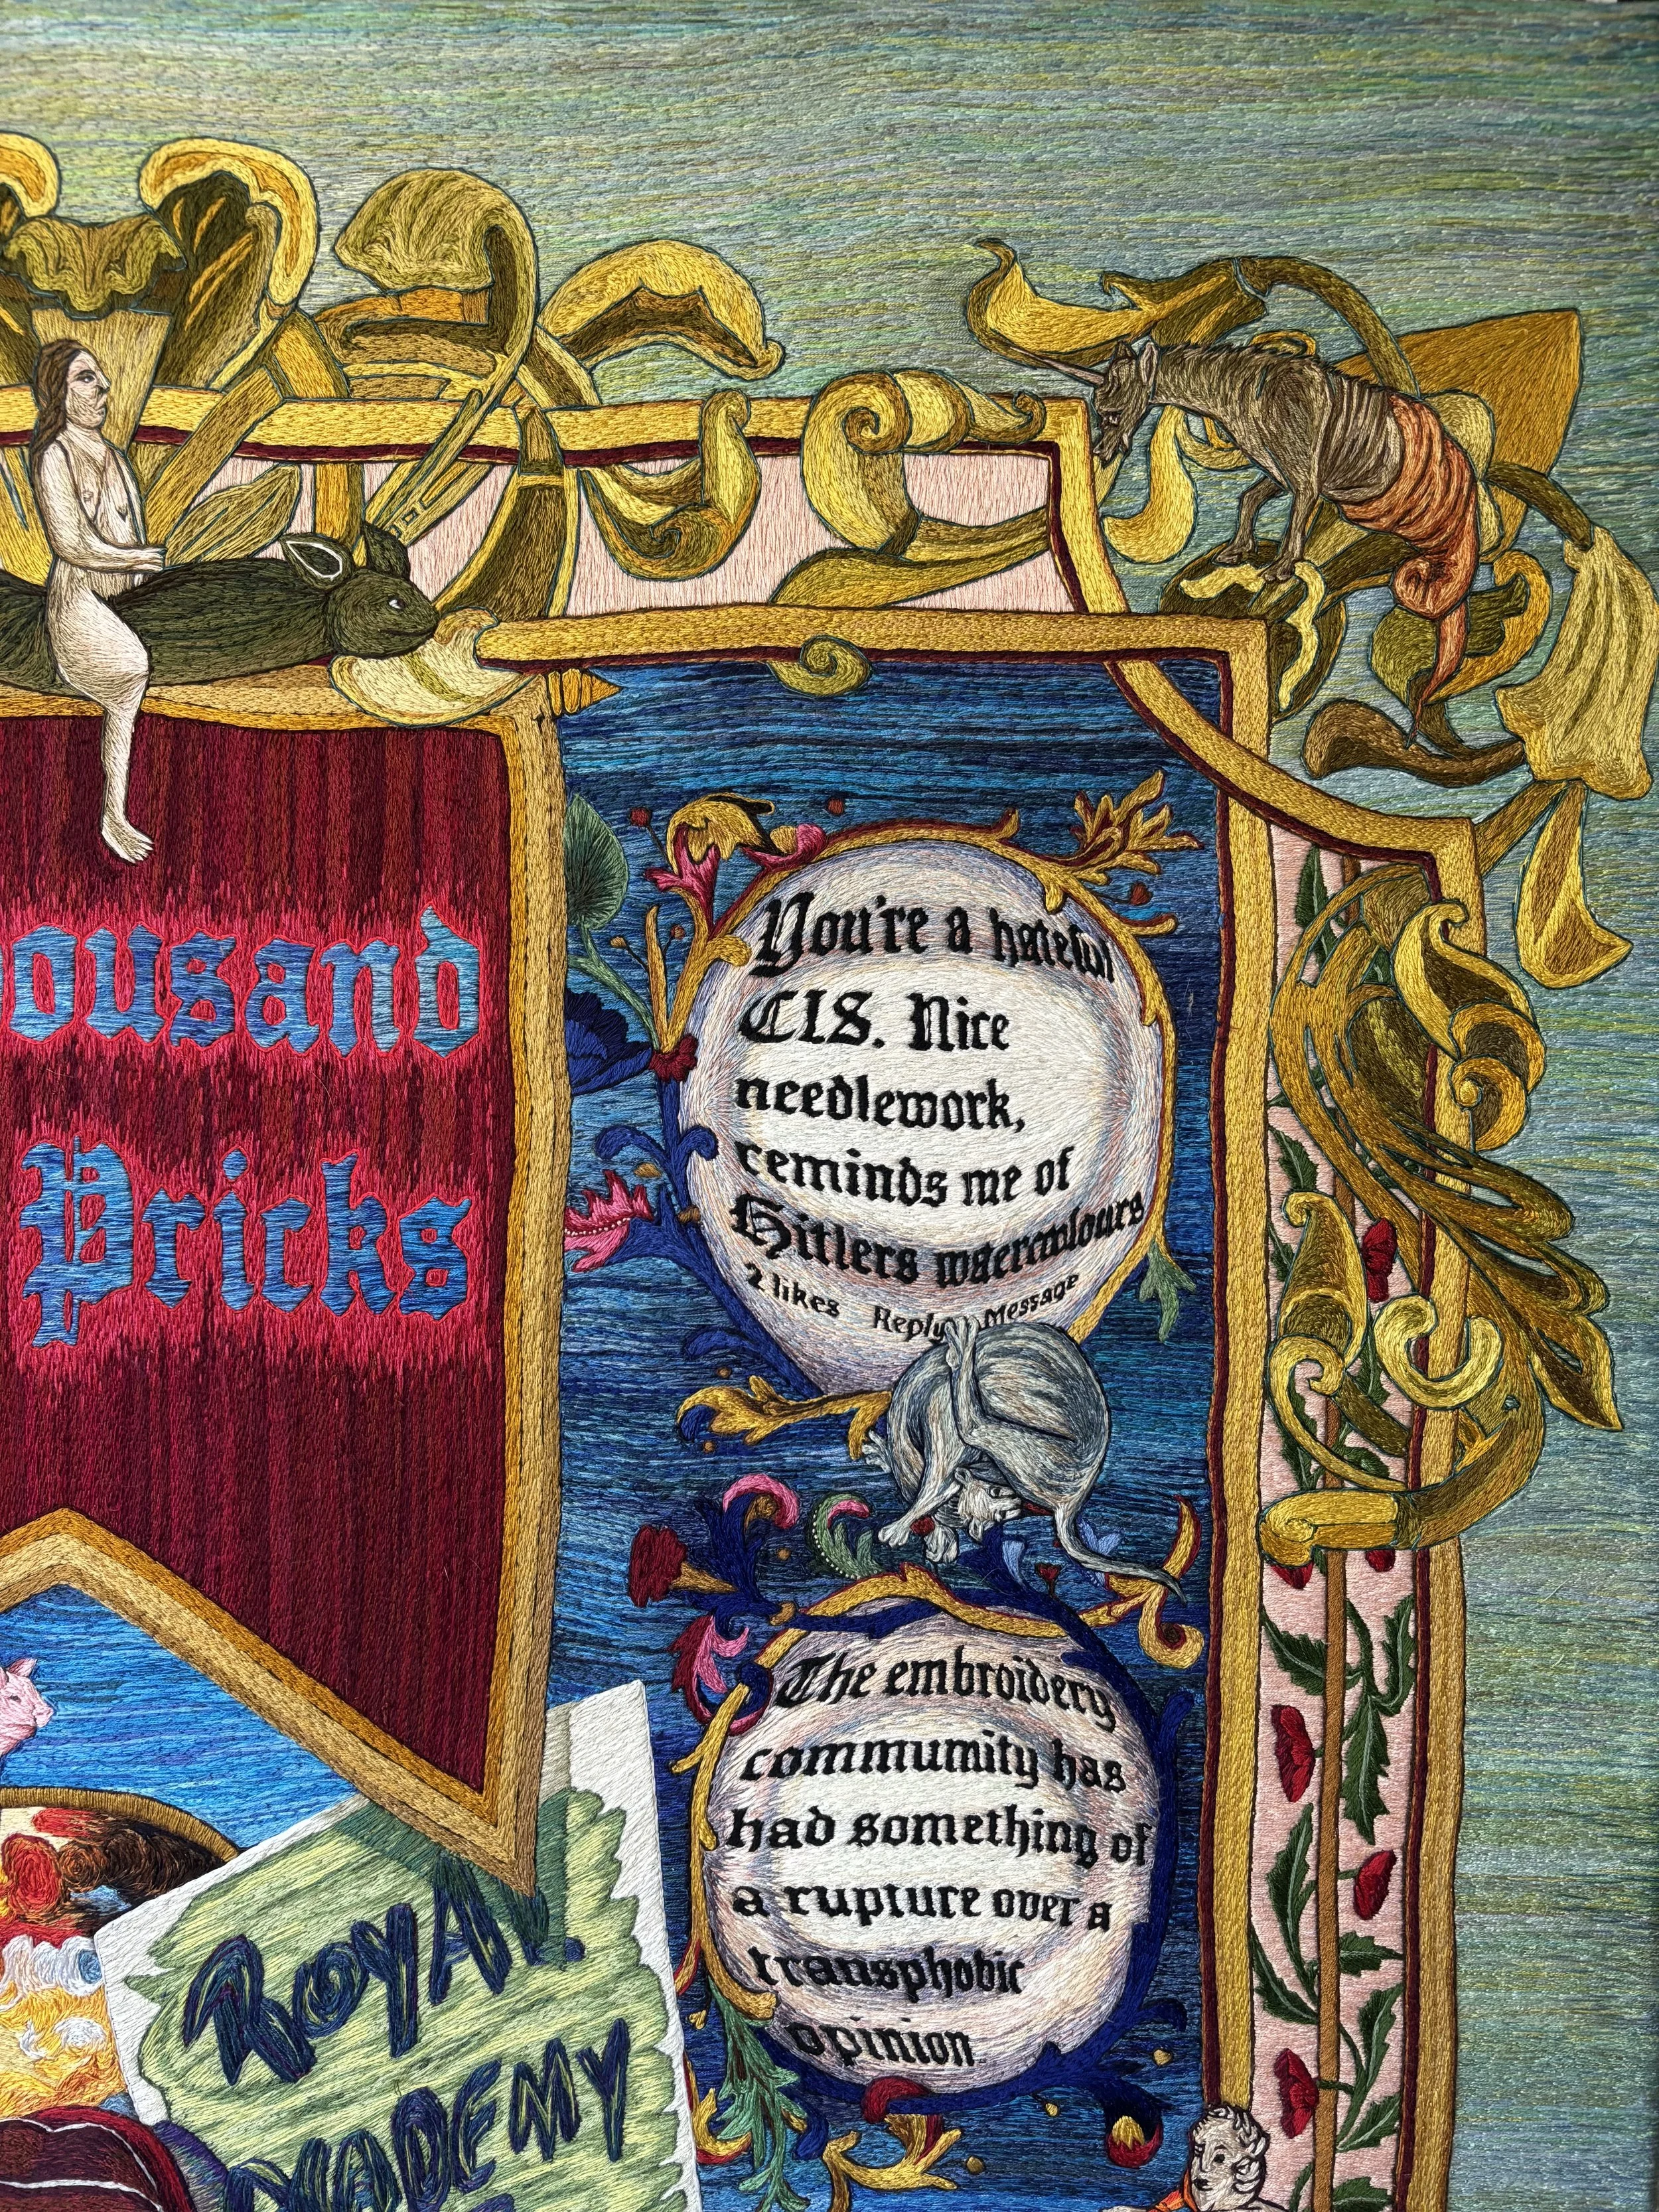 ousand
Pricks
You're a hateful
CIS. Nice
needlework,
reminds me of
Hitlers watercolours
2 likes Reply Message
The embroidery
community has
had something of
a rupture over a
transphobic
opinion
ROYAL
ACADEMY